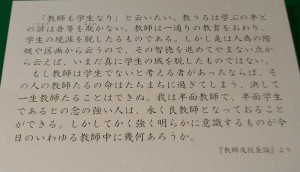 「教師も学生なり」と云いたい。教うるは学ぶの半と
の諺は吾等を欺かない。教師は一通りの教育をおわり、
学生の境涯を脱したものである。しかし是は人為の階
級や区画から云うので、その智徳を進めてやまない点か
ら云えば、いまだ真に学生の域を脱したものではない。
もし教師は学生でないと考える者があったならば、そ
の人の教師たるの命はたちまちに過ぎてしまう。決して
一生教師たることはできぬ。我は半面教師で、半面学生
であるとの念の強い人は、永く良教師となっておること
ができる。しかしてかく強く明らかに意識するものが今
日のいわゆる教師中に幾何あろうか。
『教師及校長論』より